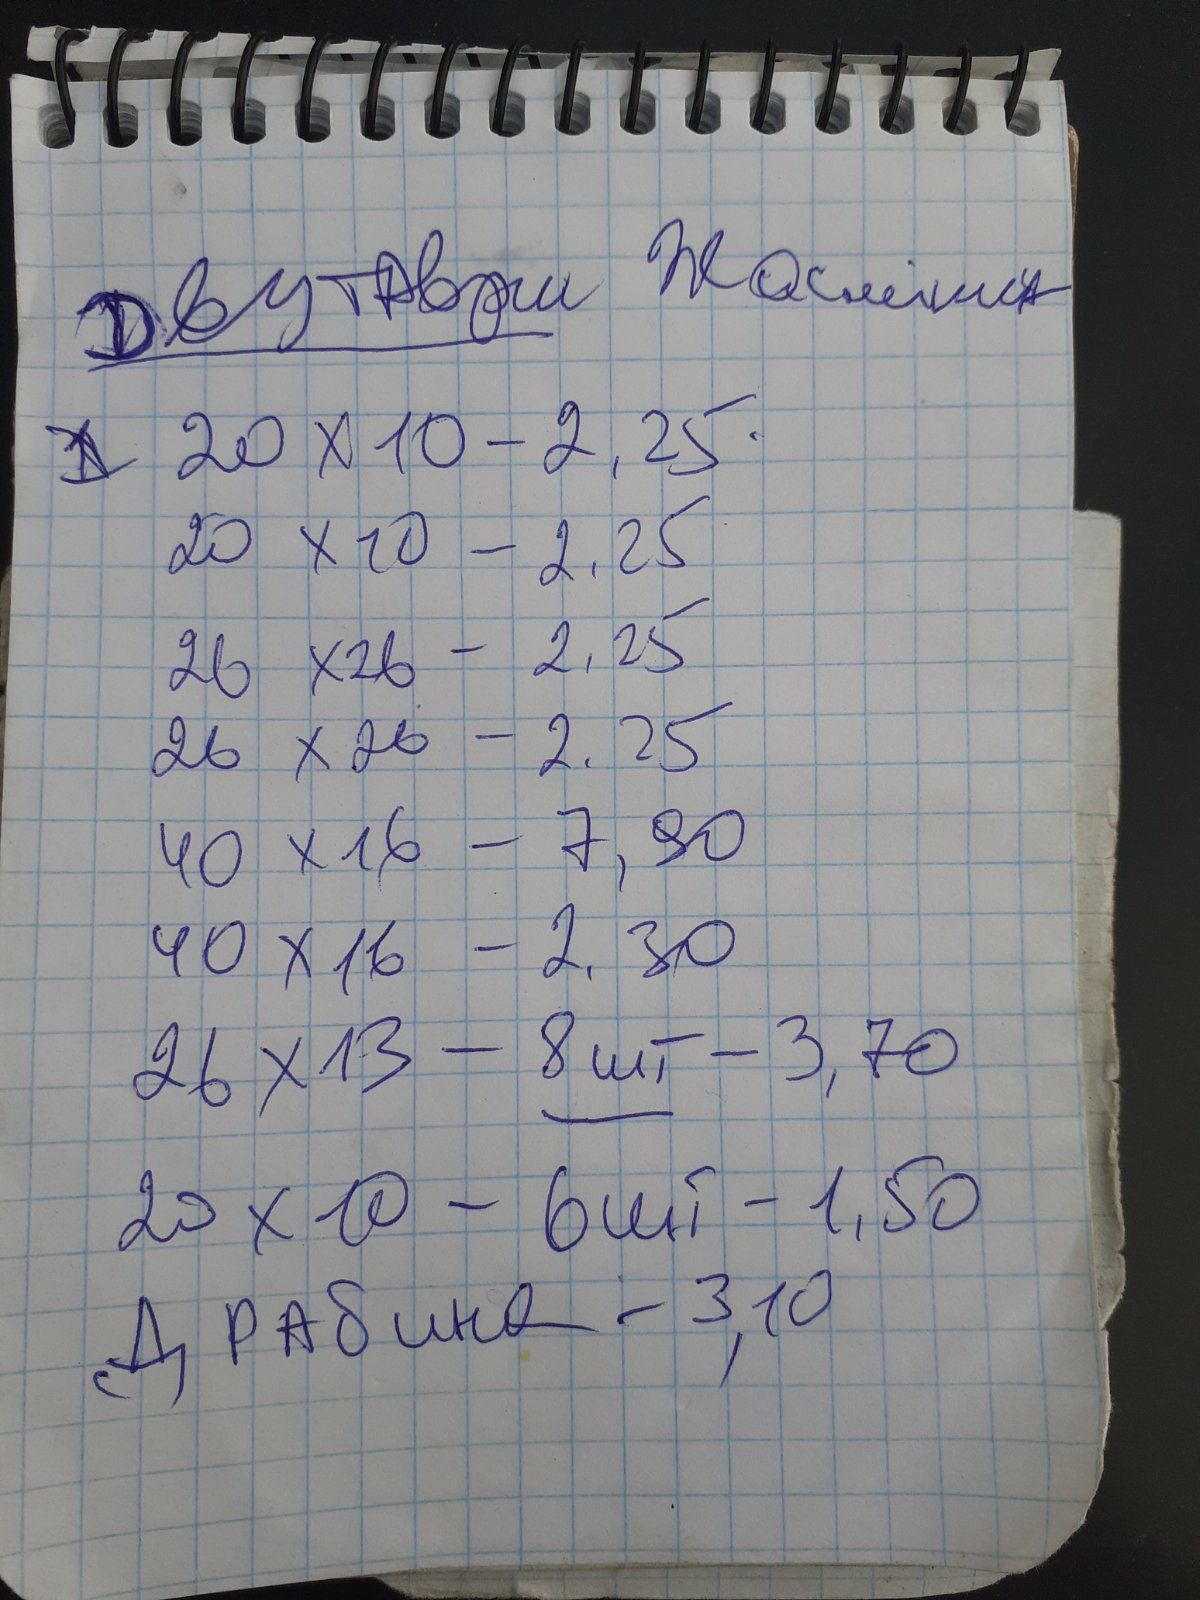 Двутаври
20 х 10 - 2,25.
20 х 10 - 2.25
26 х 26 - 2.25
26 х 26 - 2.25
40 х 16 - 7,90
40 х 16 - 2.30
26 х 13 - 8 шт - 3,70
20 х 10 - 6 шт - 1,50
Драбина - 3,10